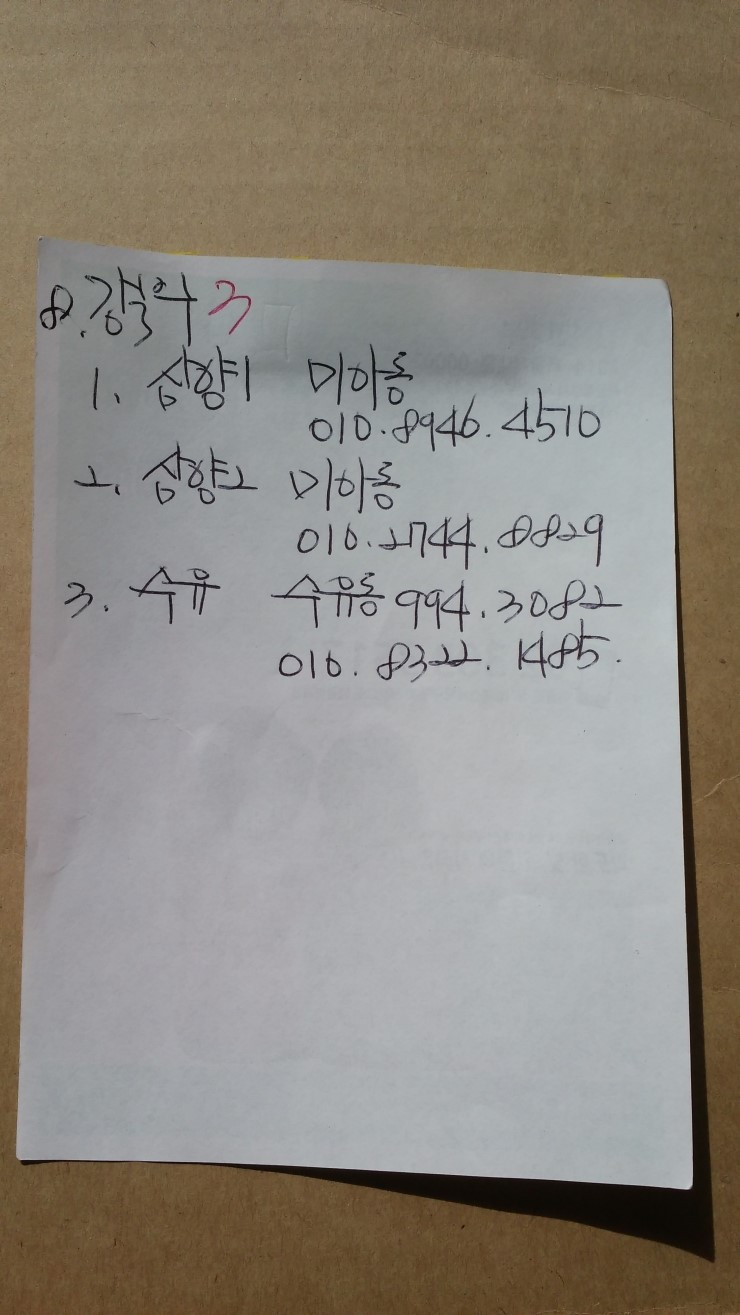 8. 강북구 3
1. 삼양1 미아동
010.8946.4510
2. 삼양2 미아동
010.2744.8829
3. 수유 수유동 994.3082
010.8322.1485.